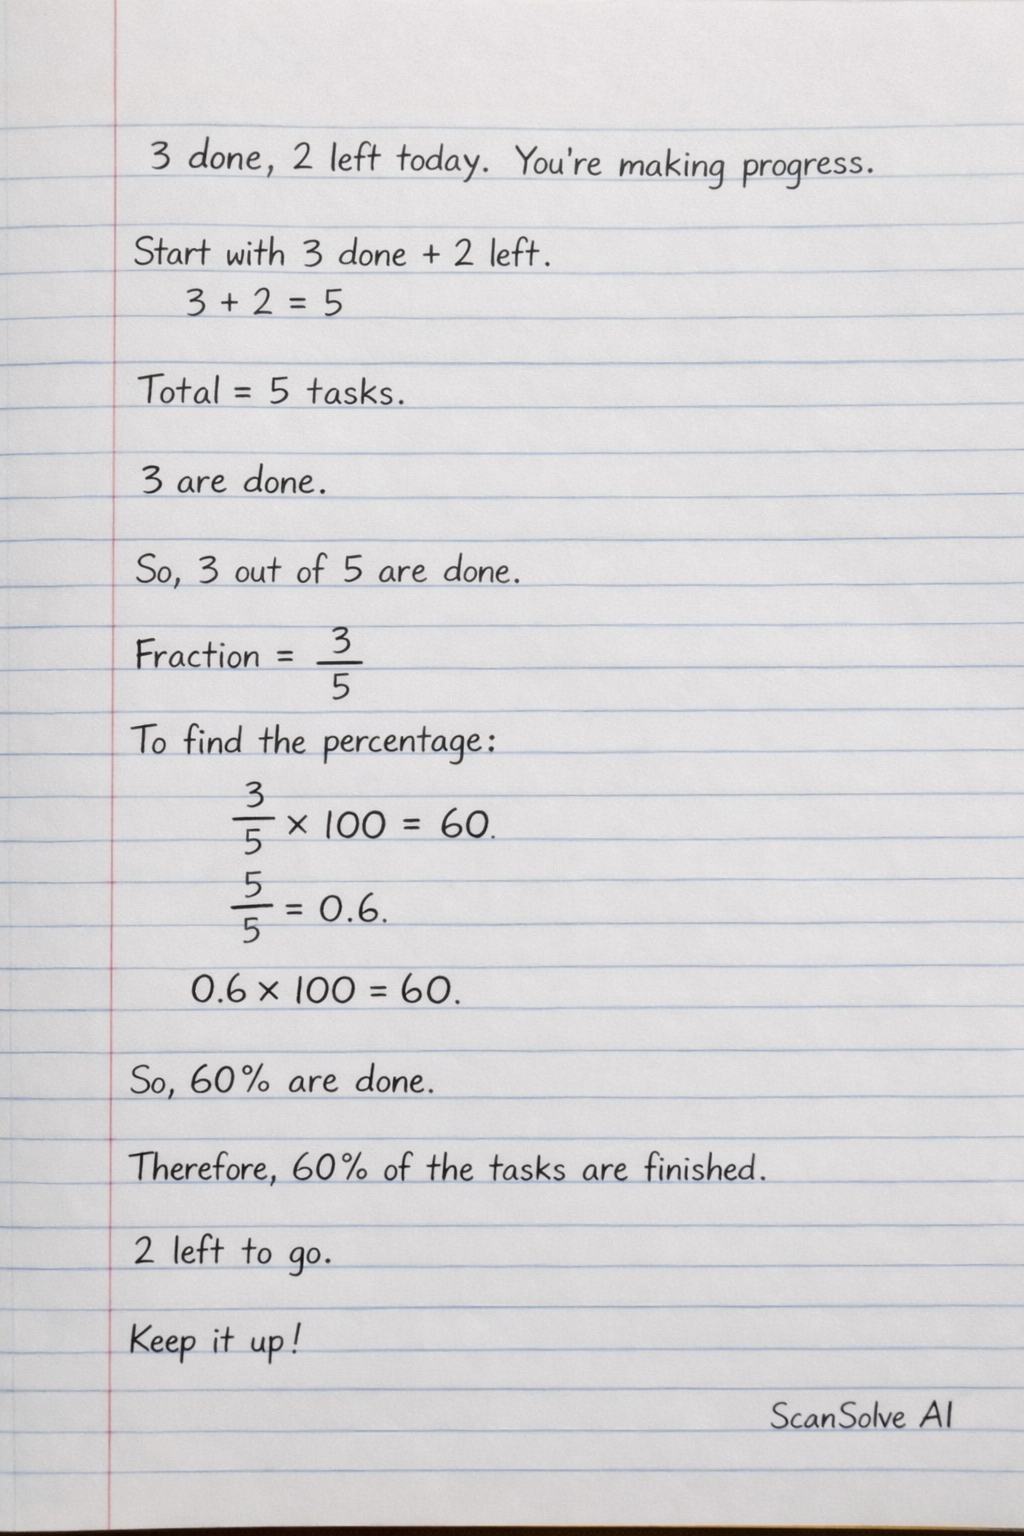 3 done, 2 left today. You're making progress.
Start with 3 done + 2 left.
3 + 2 = 5
Total = 5 tasks.
3 are done.
So, 3 out of 5 are done.
Fraction = 3/5
To find the percentage:
3/5 × 100 = 60.
5/5 = 0.6.
0.6 × 100 = 60.
So, 60% are done.
Therefore, 60% of the tasks are finished.
2 left to go.
Keep it up!
ScanSolve AI